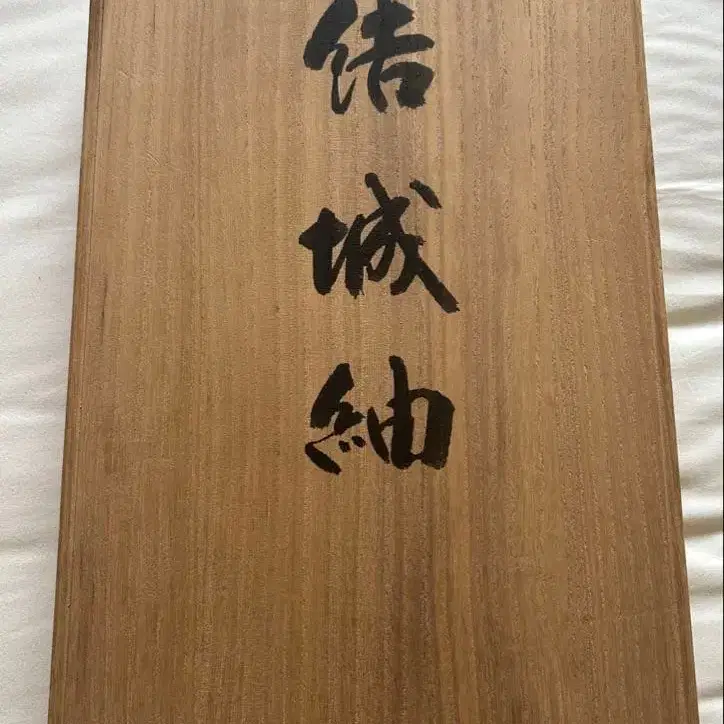 結城紬